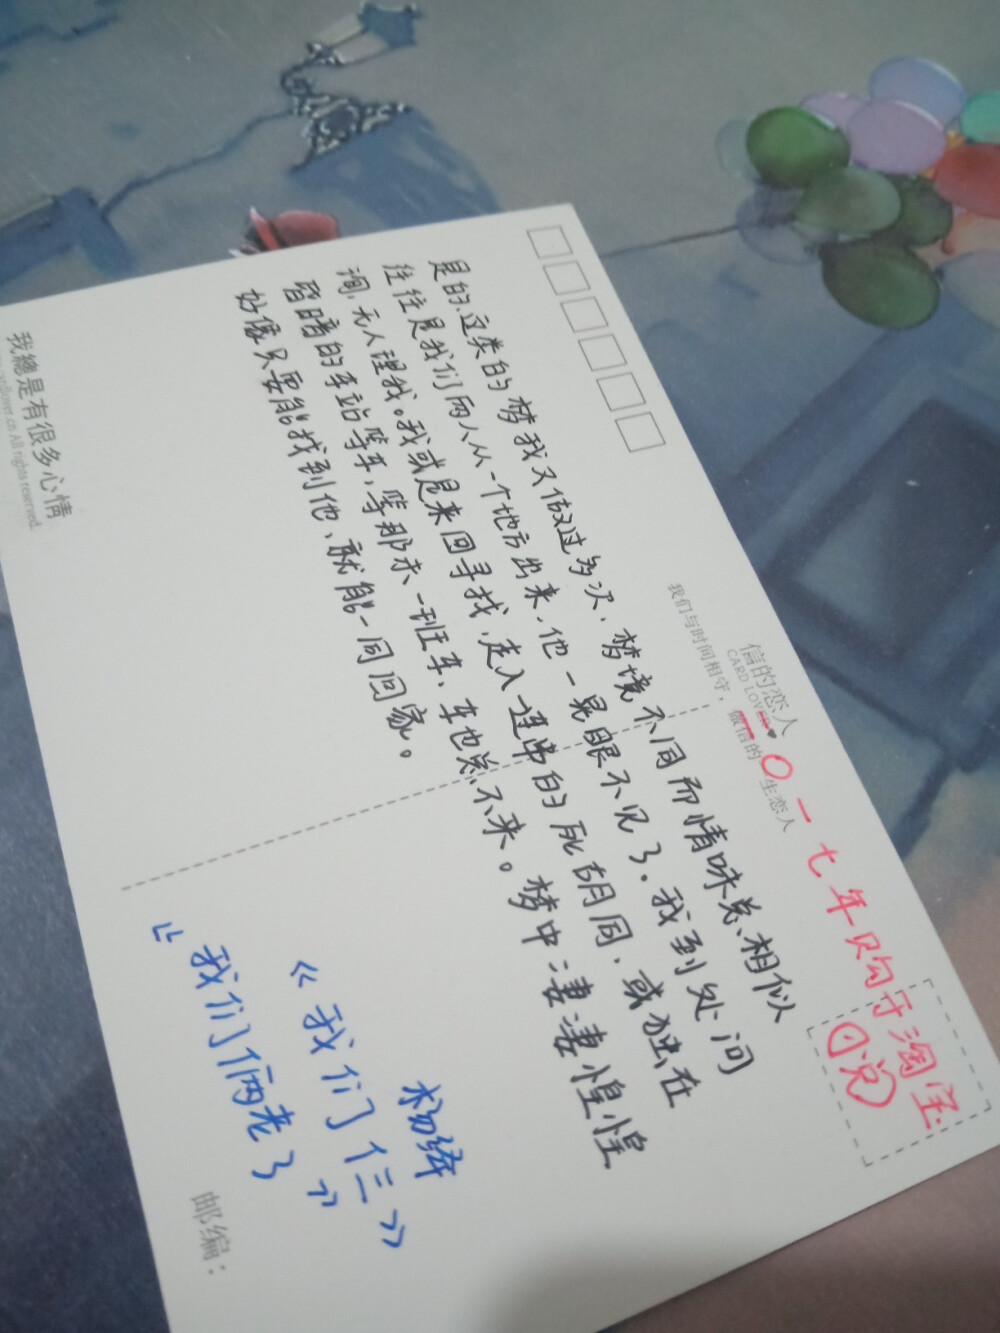 二〇一七年购于淘宝
(日说)
信的恋人
CARD LOVER
我们与时间相守，做信的一生恋人
是的、这类的梦我又做过多次，梦境不同而情味总相似
往往是我们两人从一个地方出来，他一晃眼不见了。我到处问
询，无人理我。我或是来回寻找，走入一连串的死胡同，或独在
昏暗的车站等车，等那末一班车，车也总不来。梦中凄凄惶惶
好像只要能找到他，就能一同回家。
杨绛
《我们仨》
《我们俩老了》
邮编：
我總是有很多心情
All rights reserved.